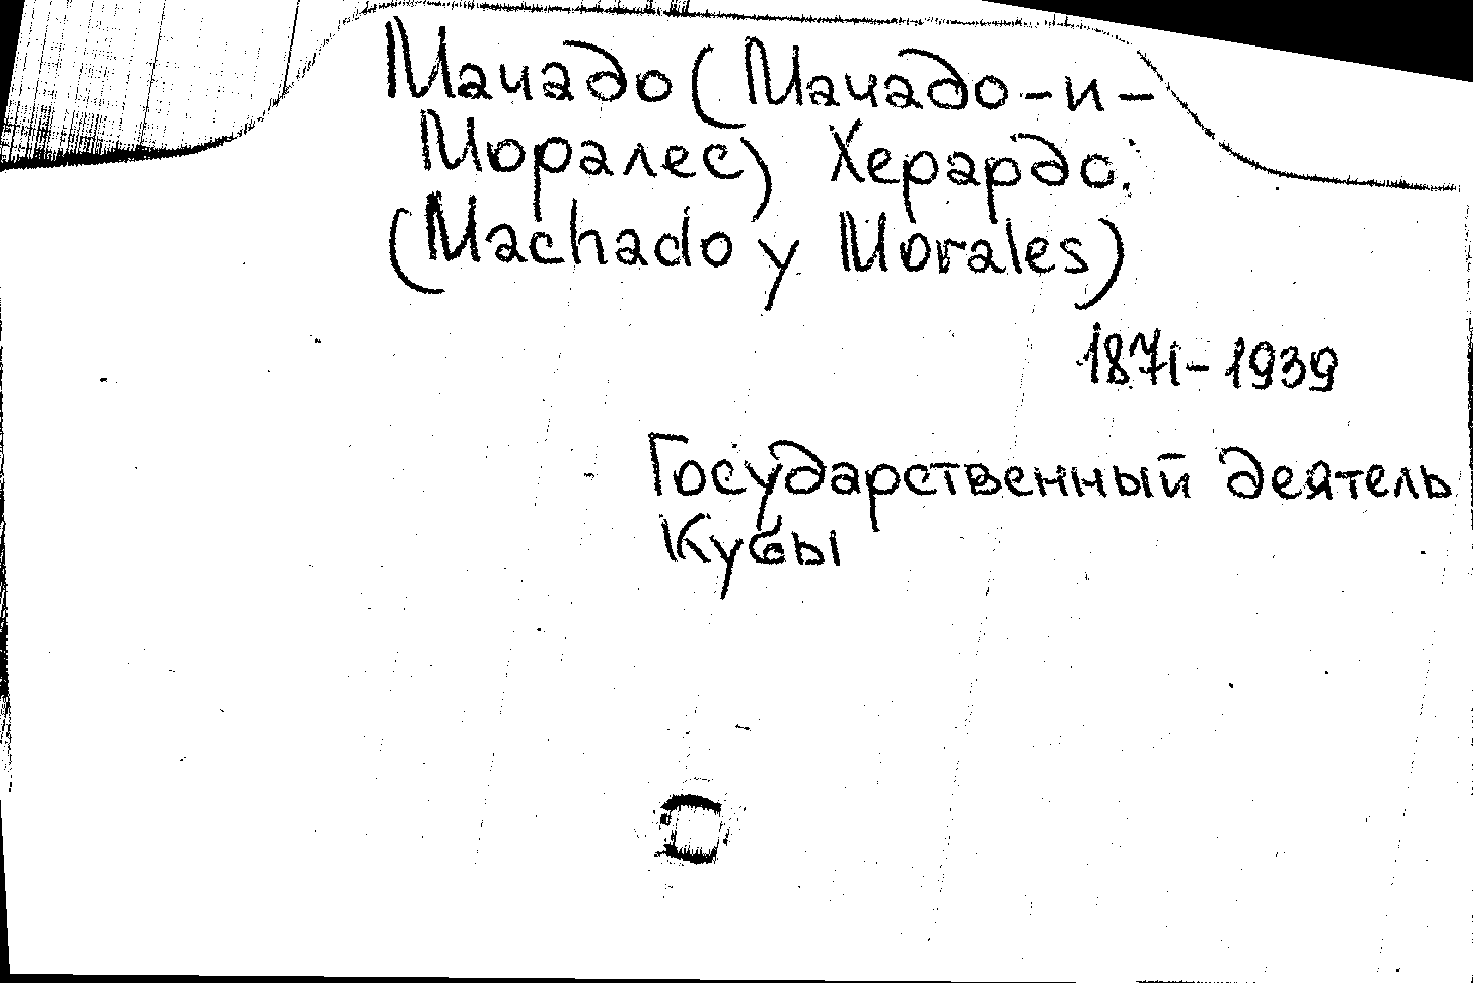 Мачадо (Мачадо-и-
Моралес) Херардо.
(Machado y Morales)
1871-1939
Государственный деятель
Кубы